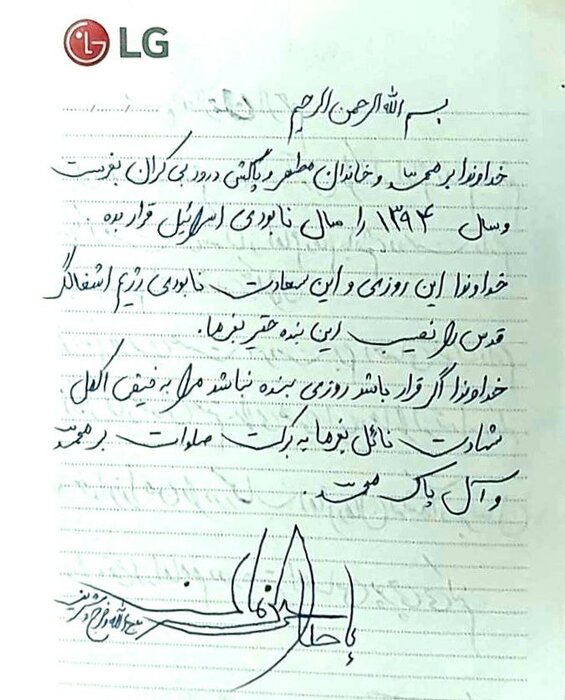 LG
بسم الله الرحمن الرحیم
خداوندا بر محمد و خاندان مطهر و پاکش درود بی کران بفرست
و سال ۱۳۹۴ را سال نابودی اسرائیل قرار بده.
خداوندا این روزی و این سعادت نابودی رژیم اشغالگر
قدس را نصیب این بنده حقیر بفرما.
خداوندا اگر قرار باشد روزی بنده نباشد مرا به فیض اکمل
شهادت نائل بفرما به برکت صلوات بر محمد
و آل پاک محمد.
یا صاحب الزمان